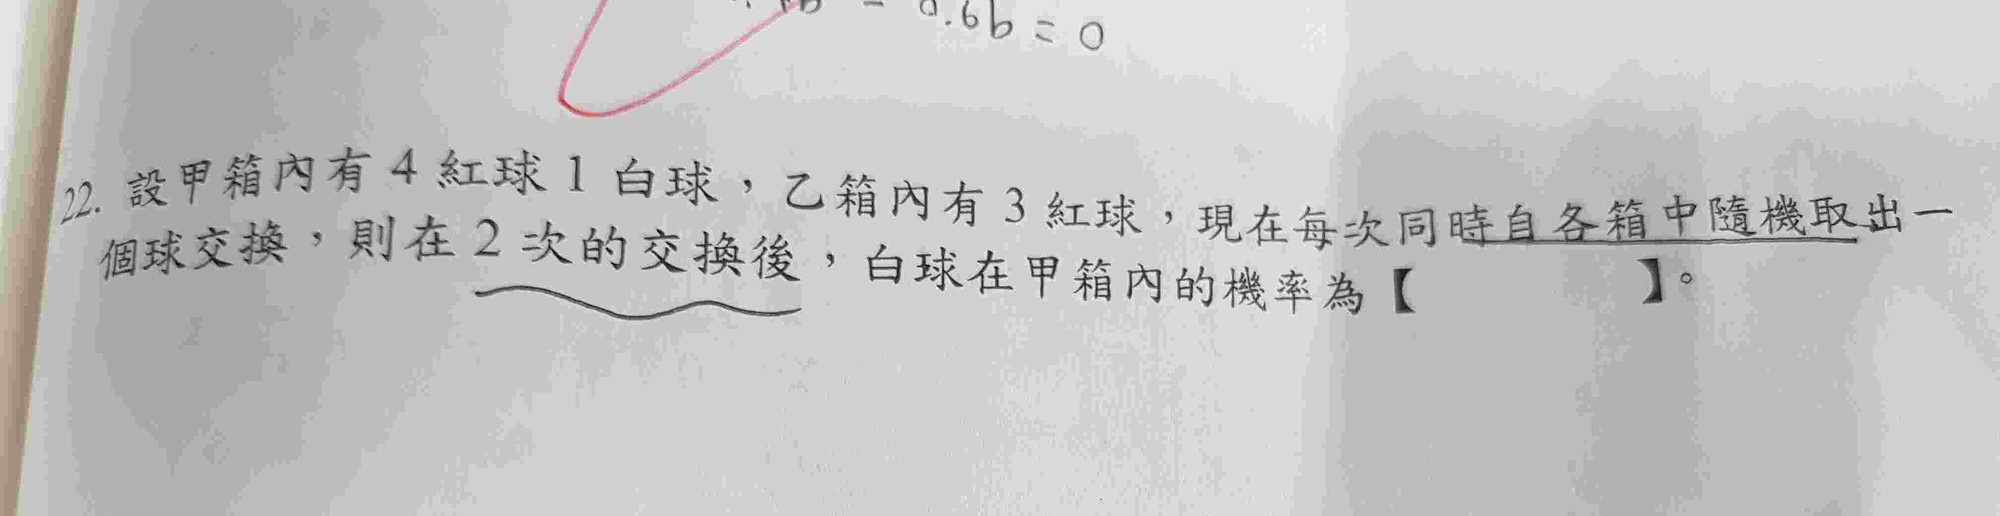 0.6b = 0
22. 設甲箱內有 4 紅球 1 白球，乙箱內有 3 紅球，現在每次同時自各箱中隨機取出一
個球交換，則在 2 次的交換後，白球在甲箱內的機率為【 】。